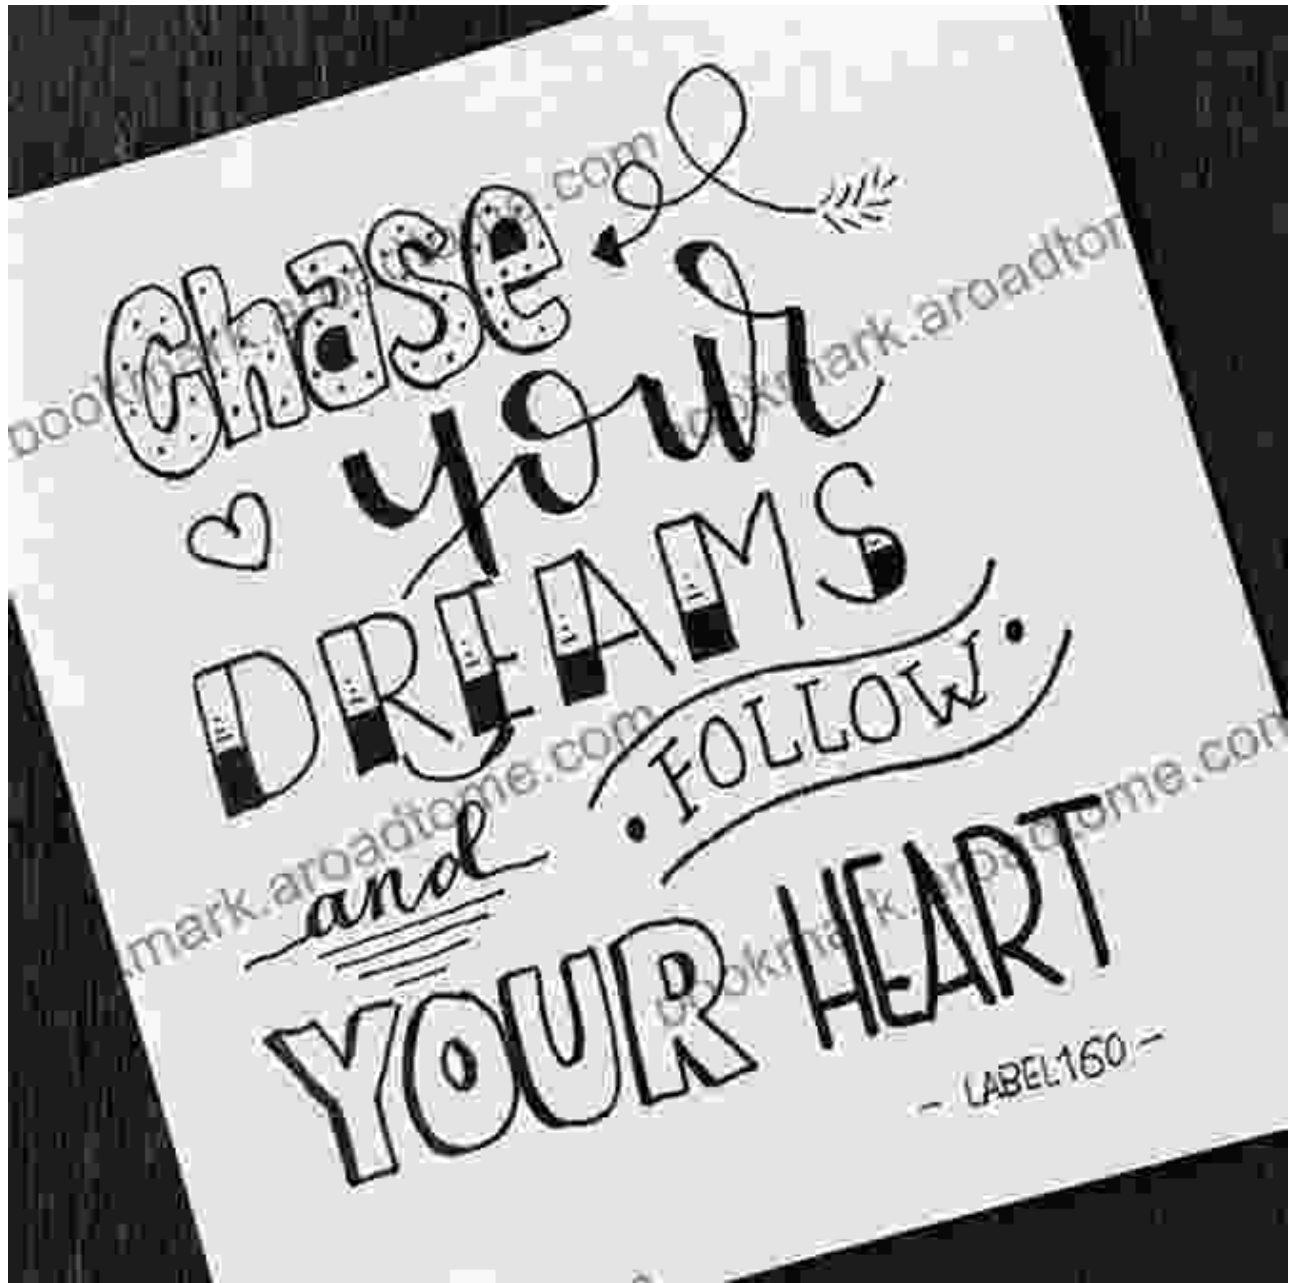 Chase
your
DREAMS
and FOLLOW
YOUR HEART
- LABEL160 -
bookmark.aroadtome.com
bookmark.aroadtome.com
bookmark.aroadtome.com
bookmark.aroadtome.com